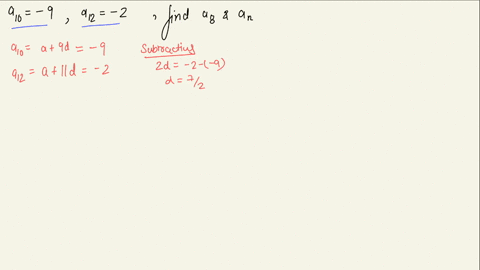 a₁₀ = -9 , a₁₂ = -2 , find a₈ & aₙ
a₁₀ = a + 9d = -9
a₁₂ = a + 11d = -2
Subtracting
2d = -2 - (-9)
d = 7/2